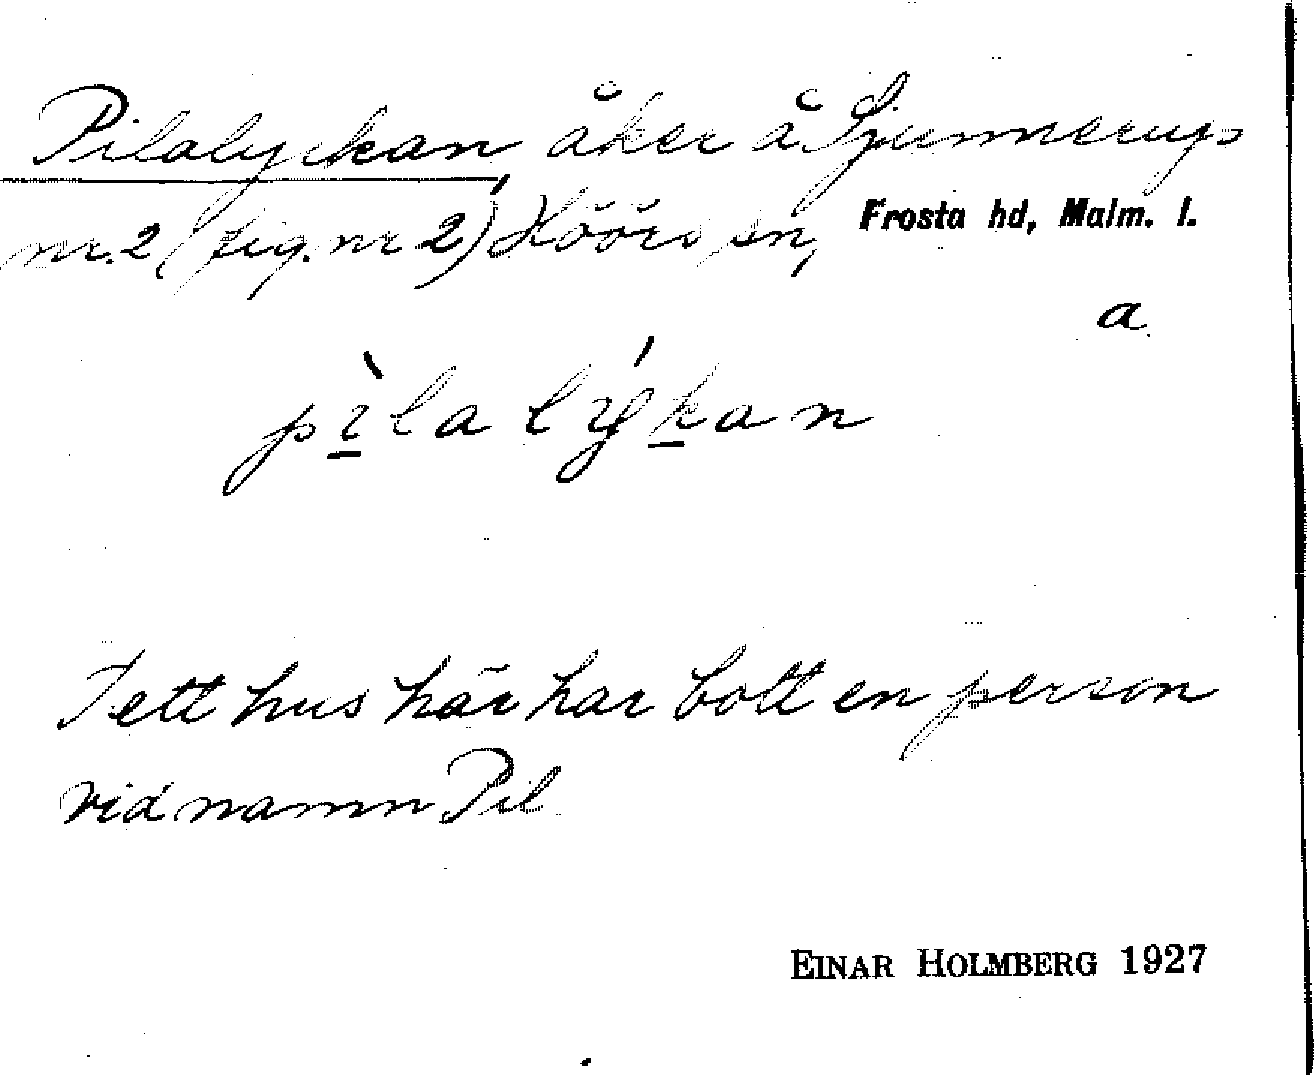 Pilalyckan, åker å Sjunnerups
nr. 2 (fig. nr 2) Höörs sn, Frosta hd, Malm. l.
a.
pìlalýkan
I ett hus här har bott en person
vid namn Pil.
EINAR HOLMBERG 1927